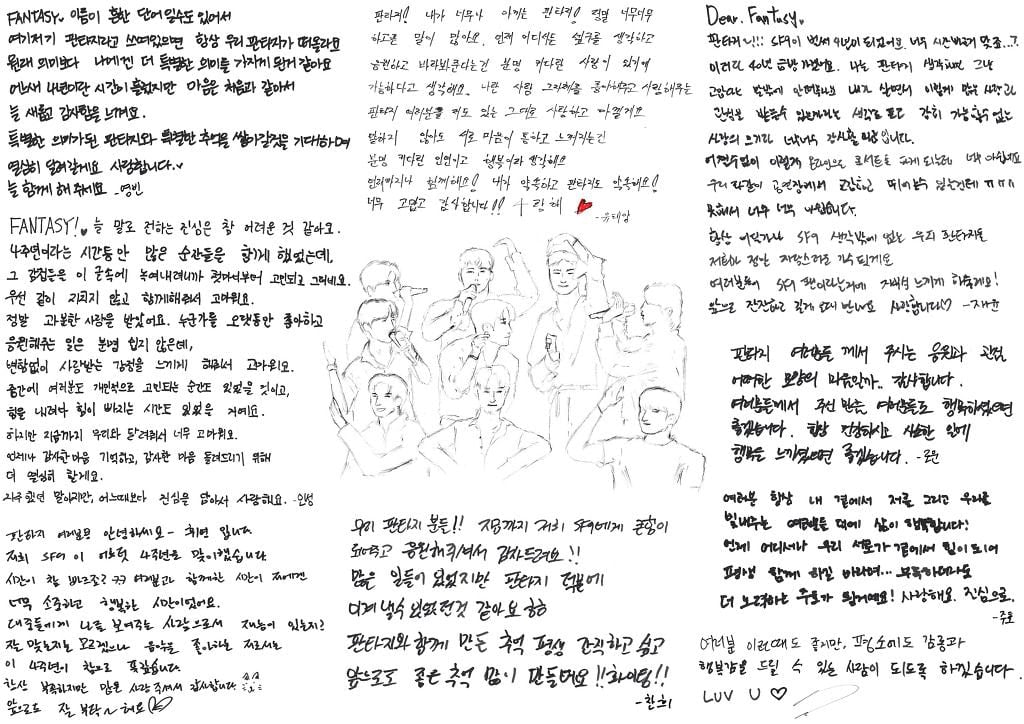 FANTASY. 이름이 흔한 단어일수도 있어서
여기저기 판타지라고 쓰여있으면 항상 우리 판타지가 떠올라요
원래 의미보다 나에겐 더 특별한 의미를 가지게 된거 같아요
어느새 4년이란 시간이 흘렀지만 마음은 처음과 같아서
늘 새롭고 감사함을 느껴요.
특별한 의미가된 판타지와 특별한 추억을 쌓아갈것을 기대하며
열심히 달려갈게요 사랑합니다.
늘 함께 해 줘요 -영빈
FANTASY! 늘 말로 전하는 진심은 참 어려운 것 같아요.
4주년이라는 시간동안 많은 순간들을 함께 했었는데,
그 감정들을 이 글속에 녹여내려니까 첫마디부터 고민되고 그러네요.
우선 같이 지치지 않고 함께해줘서 고마워요.
정말 과분한 사랑을 받았어요. 누군가를 오랫동안 좋아하고
응원해주는 일은 분명 쉽지 않은데,
변함없이 사랑받는 감정을 느끼게 해줘서 고마워요.
중간에 여러분도 개인적으로 고민되는 순간도 있었을 것이고,
힘을 내려다 힘이 빠지는 시간도 있었을 거예요.
하지만 지금까지 우리와 달려줘서 너무 고마워요.
언제나 감사한 마음 기억하고, 감사한 마음 돌려드리기 위해
더 열심히 할게요.
자주 했던 말이지만, 어느때보다 진심을 담아서 사랑해요. -인성
판타지 여러분 안녕하세요~ 휘영 입니다
저희 SF9이 어느덧 4주년을 맞이했습니다
시간이 참 빠르죠? ㅋㅋ 여러분과 함께한 시간이 저에겐
너무 소중하고 행복한 시간이었어요.
대중들에게 나를 보여주는 사람으로서 재능이 있는지?
잘 맞는지는 모르겠으나 음악을 좋아하는 저로서는
이 4주년이 참으로 뜻깊습니다
항상 부족하지만 많은 사랑 주셔서 감사합니다
앞으로도 잘 부탁~해요
판타지! 내가 너무나 아끼는 판타지! 정말 너무너무
하고픈 말이 많아요. 언제 어디서든 설구를 생각하고
응원하고 바라봐준다는건 분명 커다란 사랑이 있기에
가능하다고 생각해요. 나란 사람 그자체를 좋아해주고 사랑해주는
판타지 여러분을 저도 있는 그대로 사랑하고 아낄게요
말하지 않아도 서로 마음이 통하고 느껴지는건
분명 커다란 인연이고 행복이라 생각해요
언제까지나 함께해요! 내가 약속하고 판타지도 약속해요!
너무 고맙고 감사합니다!! 사랑해
-유태양
우리 판타지 분들!! 지금까지 저희 SF9에게 큰힘이
되어주고 응원해주셔서 감사드려요!!
많은 일들이 있었지만 판타지 덕분에
이겨낼수 있었던것 같아요 ㅎㅎ
판타지와 함께 만든 추억 평생 간직하고 싶고
앞으로도 좋은 추억 많이 만들어요!! 화이팅!!
-찬희
Dear. Fantasy.
판타지~!!! SF9이 벌써 4년이 되었어요. 너무 시간빠르죠 맞죠...?
이러다 40년 금방 가겠어요. 나는 판타지 생각하면 그냥
고맙다는 말밖에 안떠올라요 내가 살면서 이렇게 많은 사랑과
관심을 받을수 있을까라는 생각도 들고 감히 가늠할수 없는
사랑의 크기라 너무너무 감사할 뿐입니다.
어쩔수없이 이렇게 온라인으로 콘서트를 하게 되는데 너무 아쉽네요
우리 다같이 공연장에서 교감하고 뛰어놀고 싶은건데 ㅠㅠㅠ
못해서 너무 너무 아쉽습니다.
항상 어딜가나 SF9 생각밖에 없는 우리 판타지들
저희가 정말 자랑스러운 가수 될게요
여러분들이 SF9 팬이라는거에 자부심 느끼게 해줄게요!
앞으로 건강하고 길게 오래 만나요 사랑합니다♡ -재윤
판타지 여러분들께서 주시는 응원과 관심
어떠한 모양의 마음일까.. 감사합니다.
여러분들께서 주신 만큼 여러분들도 행복하셨으면
좋겠습니다. 항상 건강하시고 사소한 일에
행복을 느끼셨으면 좋겠습니다. -로운
여러분 항상 내 곁에서 저를 그리고 우리를
빛내주는 여러분들 덕에 삶이 행복합니다!
언제 어디서나 우리 서로가 곁에서 힘이 되어
평생 함께 하길 바라며... 부족하더라도
더 노력하는 주호가 될거예요! 사랑해요. 진심으로.
-주호
여러분 이런때도 좋지만, 평소에도 감동과
행복감을 드릴 수 있는 사람이 되도록 하겠습니다
LUV U ♡